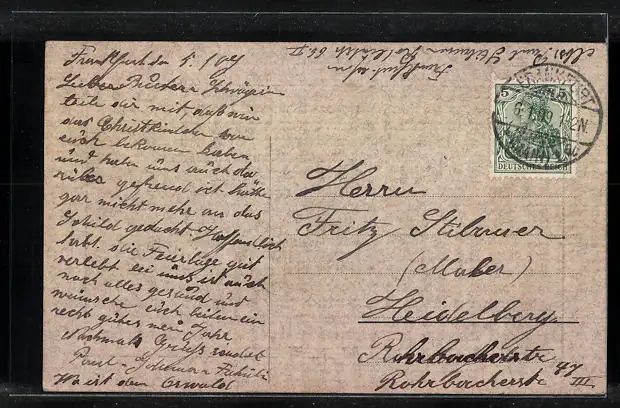 Frankfurt den 5. 1 09
Lieber Bruder u. Schwägerin
teile dir mit, daß wir
das Christkindchen von
euch bekomen haben
und haben uns auch da
rüber gefreud ich hätte
gar nicht mehr an das
Schild gedacht Hoffendlich
habt die Feiertage gut
verlebt bei uns ist auch
noch alles gesund und
wünsche euch beiden ein
recht gutes neu Jahr
Nachmals Grüß sendet
Familie
Wo ist den Oswald
Abs.
Frankfurt a/m
FRANKFURT
(MAIN)
5 5
DEUTSCHES REICH
Herrn
Fritz Stibauer
(Maler)
Heidelberg
Rohrbacherstr
Rohrbacherstr 47 III